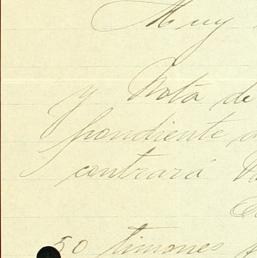 Muy
y Nota de
pondiente
contrará
50 timones